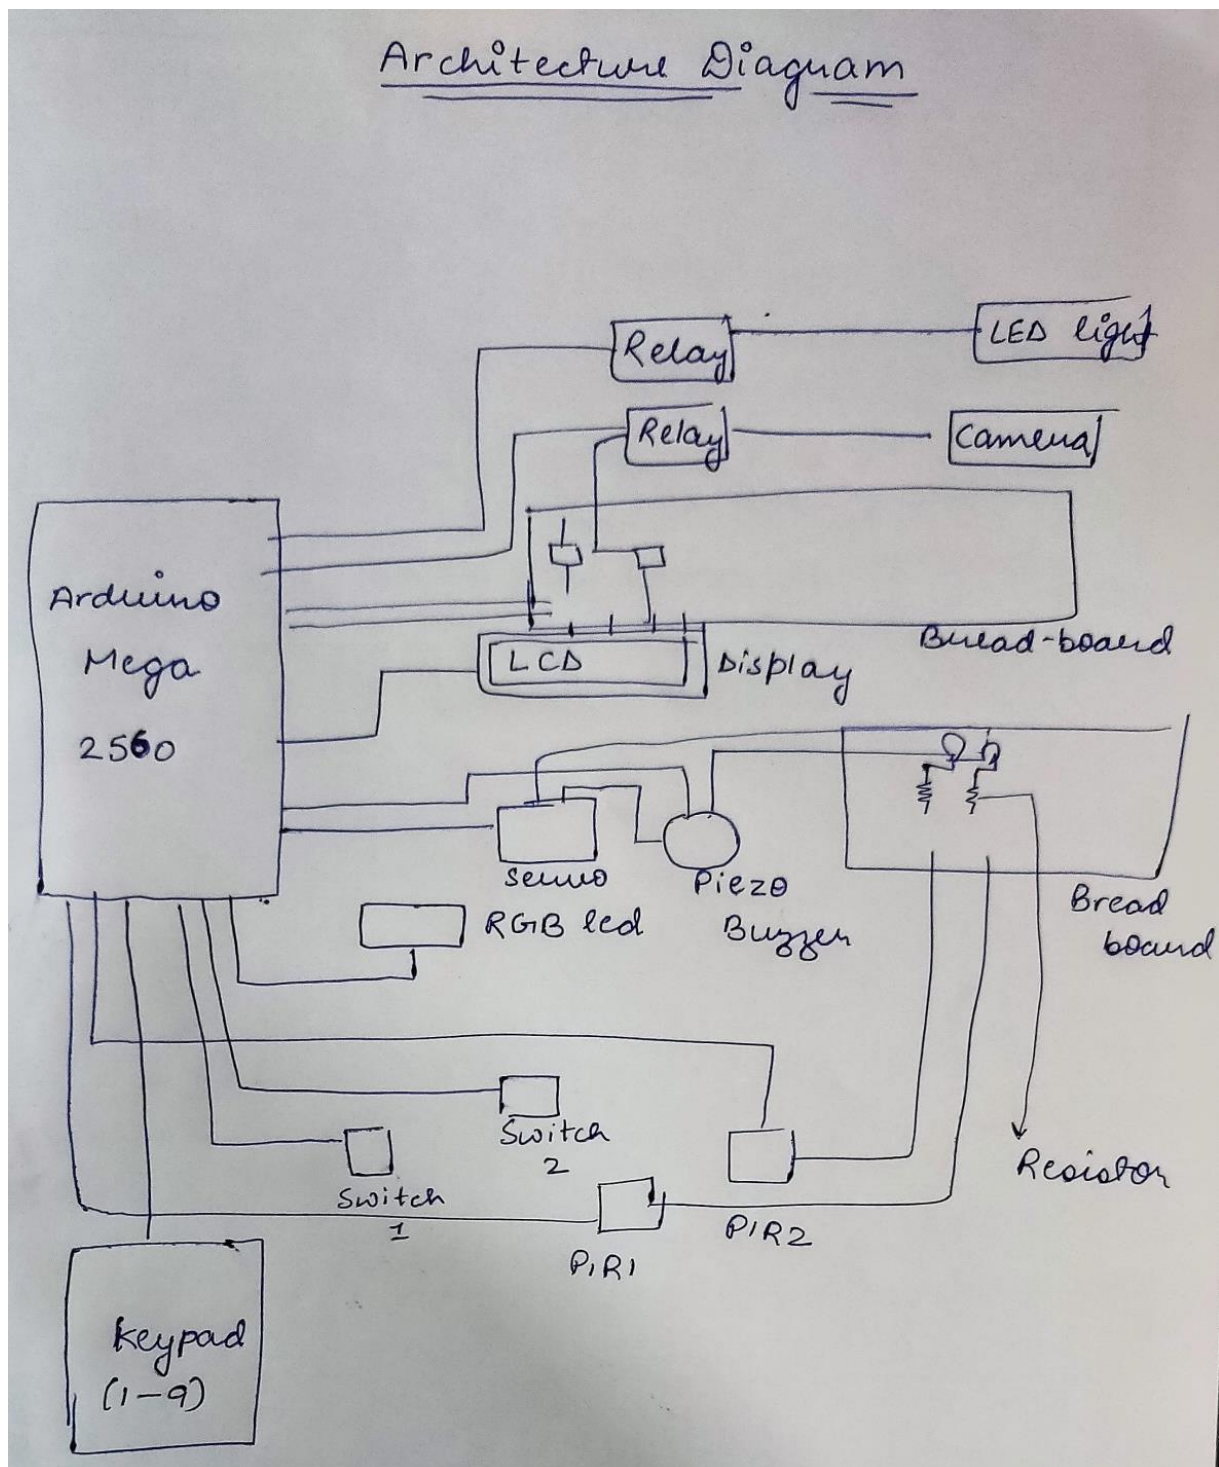 Architecture Diagram
Relay
LED light
Relay
Camera
Arduino
Mega
2560
Bread-board
LCD
Display
Servo
Piezo
Buzzer
RGB led
Bread
board
Switch
2
Switch
1
Resistor
PIR2
PIR1
keypad
(1-9)